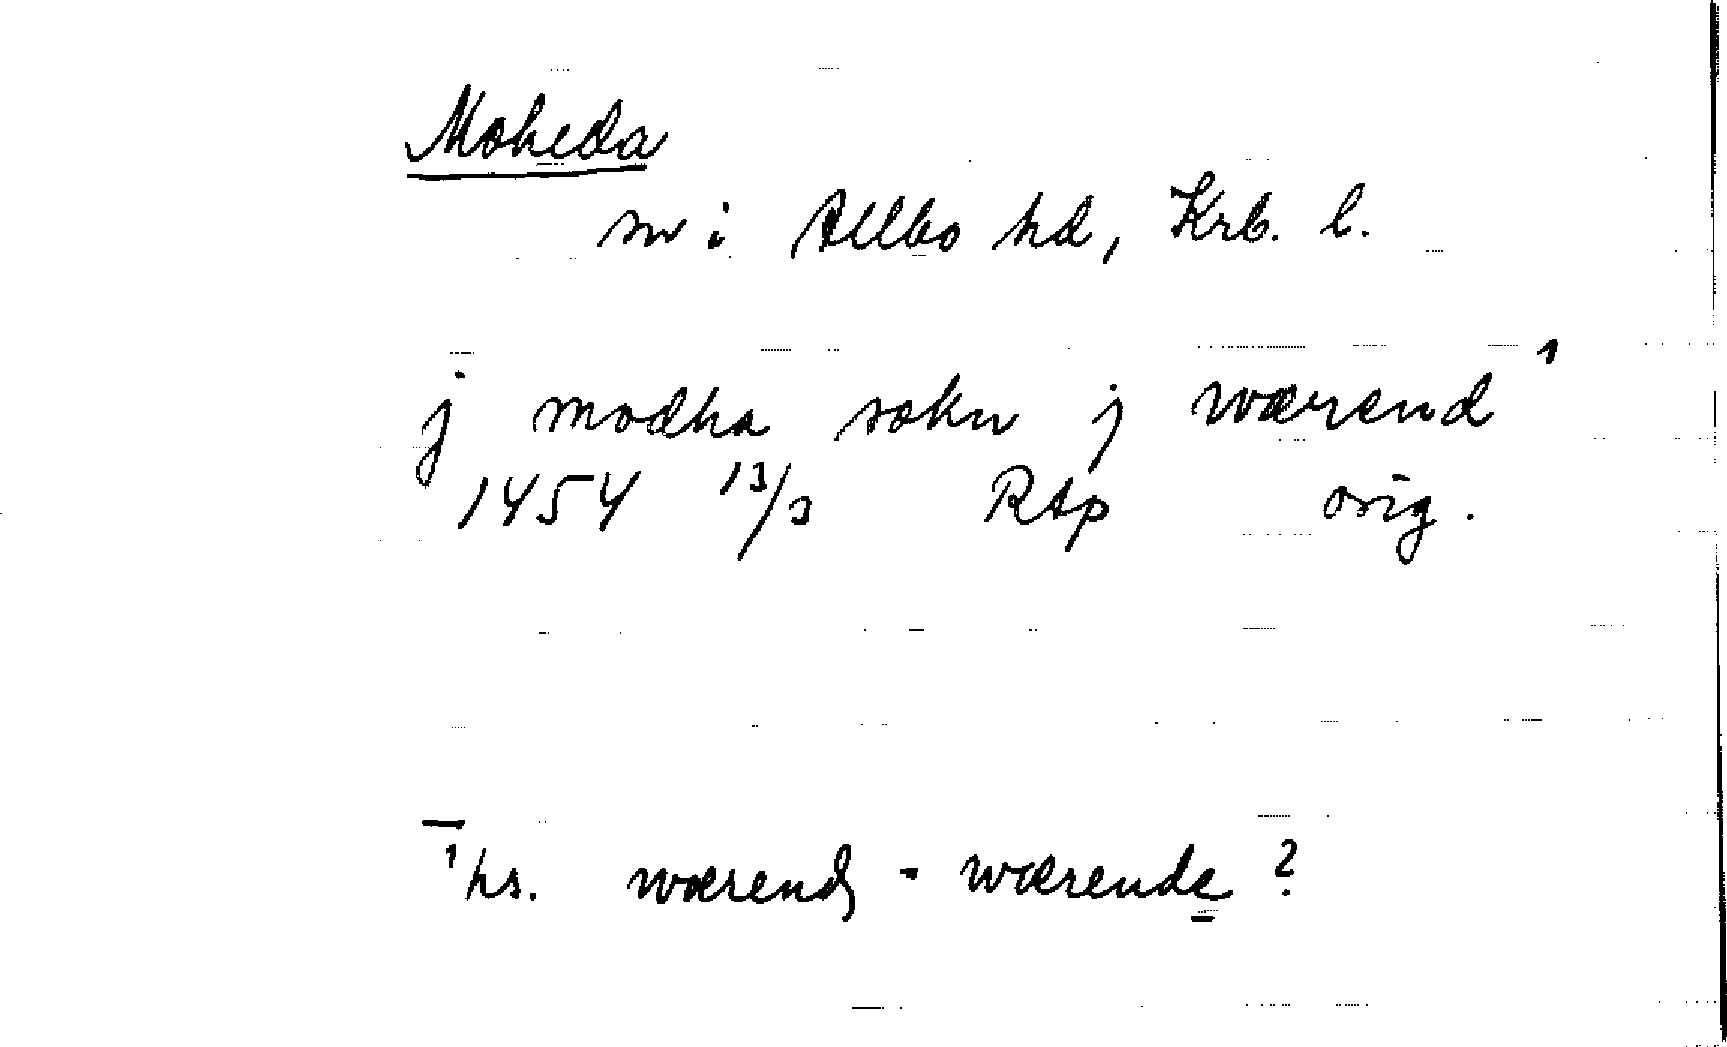 Moheda
sn i Allbo hd, Krb. l.
j modha sokn j wærend¹
1454 13/3 Rap orig.
¹ hs. wærendꝫ - wærende ?